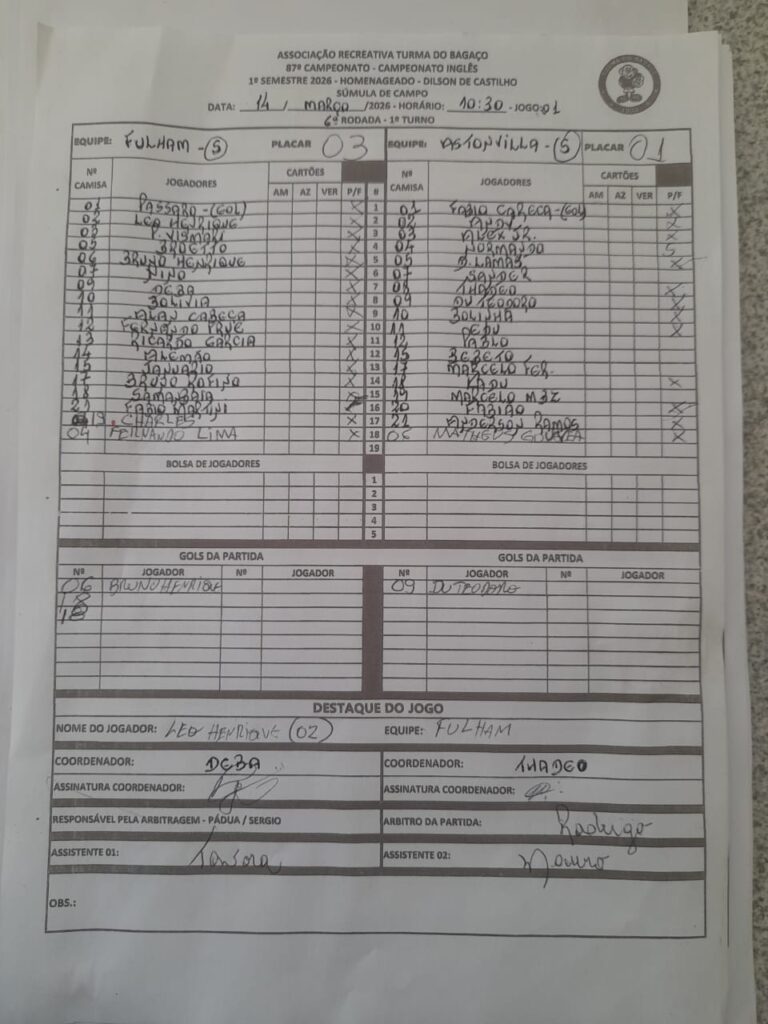 ASSOCIAÇÃO RECREATIVA TURMA DO BAGAÇO
87º CAMPEONATO - CAMPEONATO INGLÊS
1º SEMESTRE 2026 - HOMENAGEADO - DILSON DE CASTILHO
SÚMULA DE CAMPO
DATA: 14 / MARÇO /2026 - HORÁRIO: 10:30 - JOGO: 01
6ª RODADA - 1º TURNO
EQUIPE: FULHAM - (5) PLACAR 03 EQUIPE: ASTONVILLA - (5) PLACAR 01
Nº CAMISA JOGADORES CARTÕES AM AZ VER P/F # Nº CAMISA JOGADORES CARTÕES AM AZ VER P/F
01 PASSARO - (GOL) X 1 01 FABIO CARECA - (GOL) X
02 LEO HENRIQUE X 2 02 X
03 P. VISMARI X 3 03 ALEX JR. X
05 BROETTO X 4 04 NORMANDO S
06 BRUNO HENRIQUE X 5 05 B. LAMAS X
07 NINO X 6 07 SANDER
09 DEBA X 7 08 THADEO X
10 BOLIVIA X 8 09 DU TEODORO X
11 ALAN CABEÇA X 9 10 BOLINHA X
12 FERNANDO PRVE X 10 11 DEDU X
13 RICARDO GARCIA X 11 12 PABLO
14 ALEMÃO X 12 15 BEBETO
15 JANUARIO X 13 17 MARCELO FER.
17 BRUNO RUFINO X 14 18 KADU X
18 SAMAMBAIA 15 19 MARCELO MBZ
21 FABIO MARTINI 16 20 FABIÃO X
19. CHARLES X 17 21 ANDERSON RAMOS X
04 FERNANDO LIMA X 18 06 MATHEUS GOUVEA X
19
BOLSA DE JOGADORES BOLSA DE JOGADORES
1
2
3
4
5
GOLS DA PARTIDA GOLS DA PARTIDA
Nº JOGADOR Nº JOGADOR Nº JOGADOR Nº JOGADOR
06 BRUNO HENRIQUE 09 DU TEODORO
18
18
DESTAQUE DO JOGO
NOME DO JOGADOR: LEO HENRIQUE (02) EQUIPE: FULHAM
COORDENADOR: DEBA COORDENADOR: THADEO
ASSINATURA COORDENADOR: ASSINATURA COORDENADOR:
RESPONSÁVEL PELA ARBITRAGEM - PÁDUA / SERGIO ARBITRO DA PARTIDA: Rodrigo
ASSISTENTE 01: ASSISTENTE 02: Mauro
OBS.: